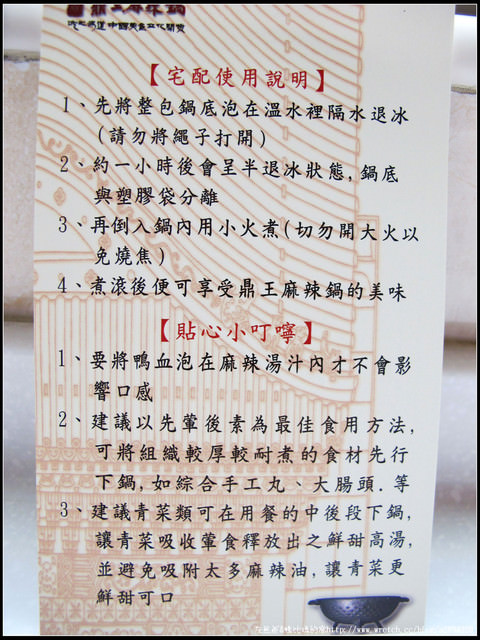 鼎王麻辣鍋
【宅配使用說明】
1、先將整包鍋底泡在溫水裡隔水退冰
(請勿將繩子打開)
2、約一小時後會呈半退冰狀態,鍋底
與塑膠袋分離
3、再倒入鍋內用小火煮(切勿開大火以
免燒焦)
4、煮滾後便可享受鼎王麻辣鍋的美味
【貼心小叮嚀】
1、要將鴨血泡在麻辣湯汁內才不會影
響口感
2、建議以先葷後素為最佳食用方法,
可將組織較厚較耐煮的食材先行
下鍋,如綜合手工丸、大腸頭.等
3、建議青菜類可在用餐的中後段下鍋,
讓青菜吸收葷食釋放出之鮮甜高湯,
並避免吸附太多麻辣油,讓青菜更
鮮甜可口